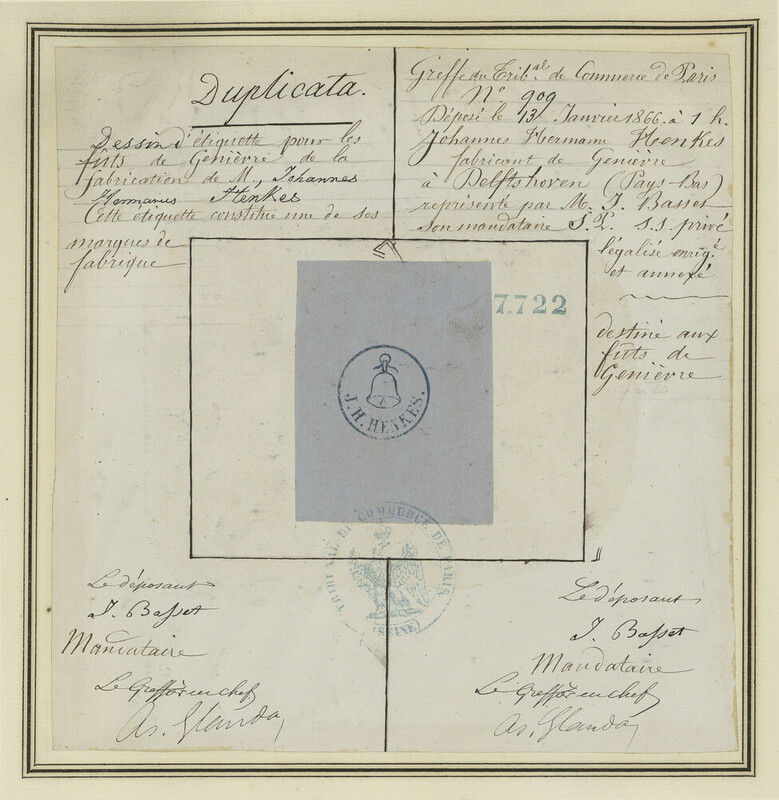 Duplicata.
Dessin d'étiquette pour les
fûts de Genièvre de la
fabrication de M., Johannes
Hermanus Henkes
Cette etiquette constitue une de ses
marques de
fabrique
Greffe du Trib.al de Commerce de Paris
N° 909
Déposé le 12 Janvier 1866 à 1 h.
Johannes Hermann Henkes
fabricant de Genièvre
à Delftshoven (Pays-Bas)
représenté par M. J. Basset
son mandataire S.P. s.s. privé
légalisé enrig.é
et annexé
destiné aux
fûts de
Genièvre
7.722
J.H. HENKES.
TRIBUNAL DE COMMERCE DE PARIS
(SEINE)
Le déposant
J. Basset
Mandataire
Le Greffier en chef
Le déposant
J. Basset
Mandataire
Le Greffier en chef